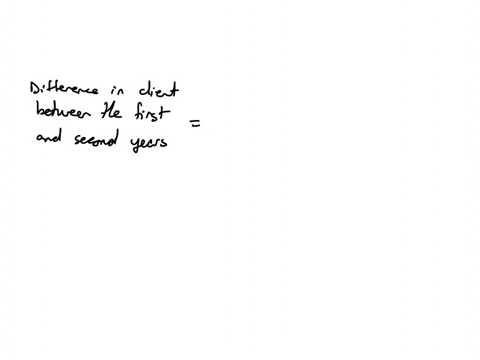 Difference in client
between the first
and second years
=